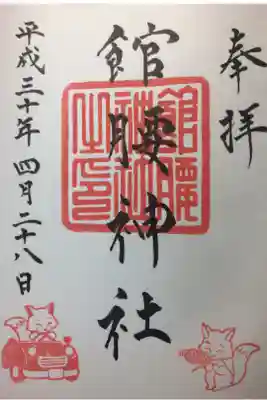 奉拝
館腰神社
平成三十年四月二十八日
館腰神社之印